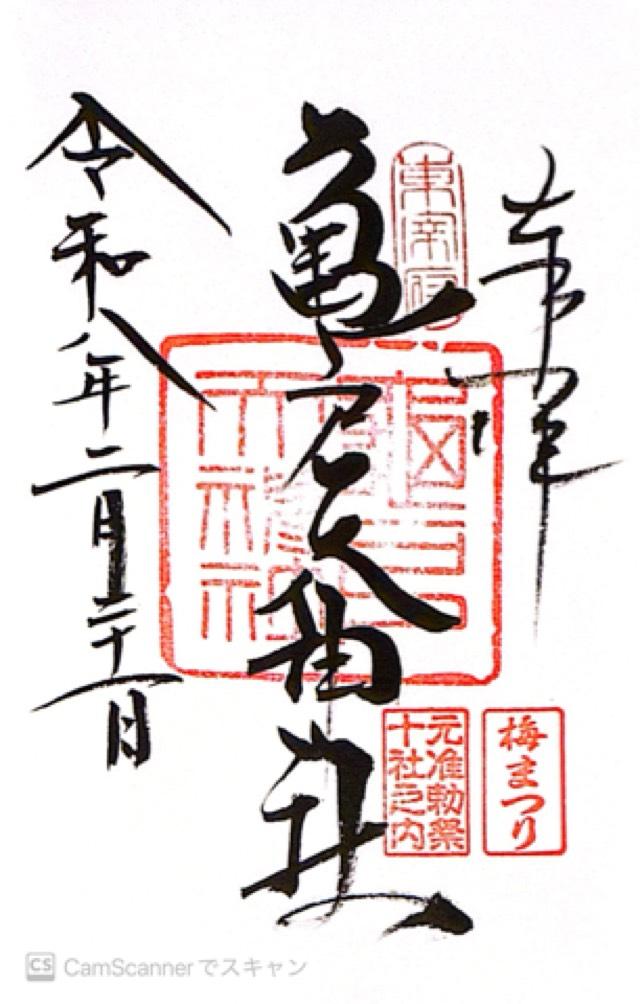 奉拝
梅まつり
東宰府
亀戸天神社
元准勅祭
十社之内
令和八年二月二十一日
CS CamScannerでスキャン